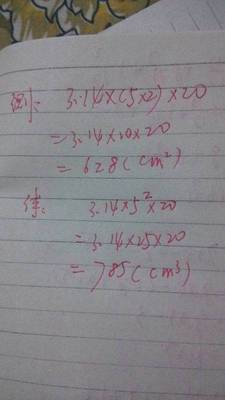 侧: 3.14×(5×2)×20
=3.14×10×20
=628(cm²)
体: 3.14×5²×20
=3.14×25×20
=785(cm³)